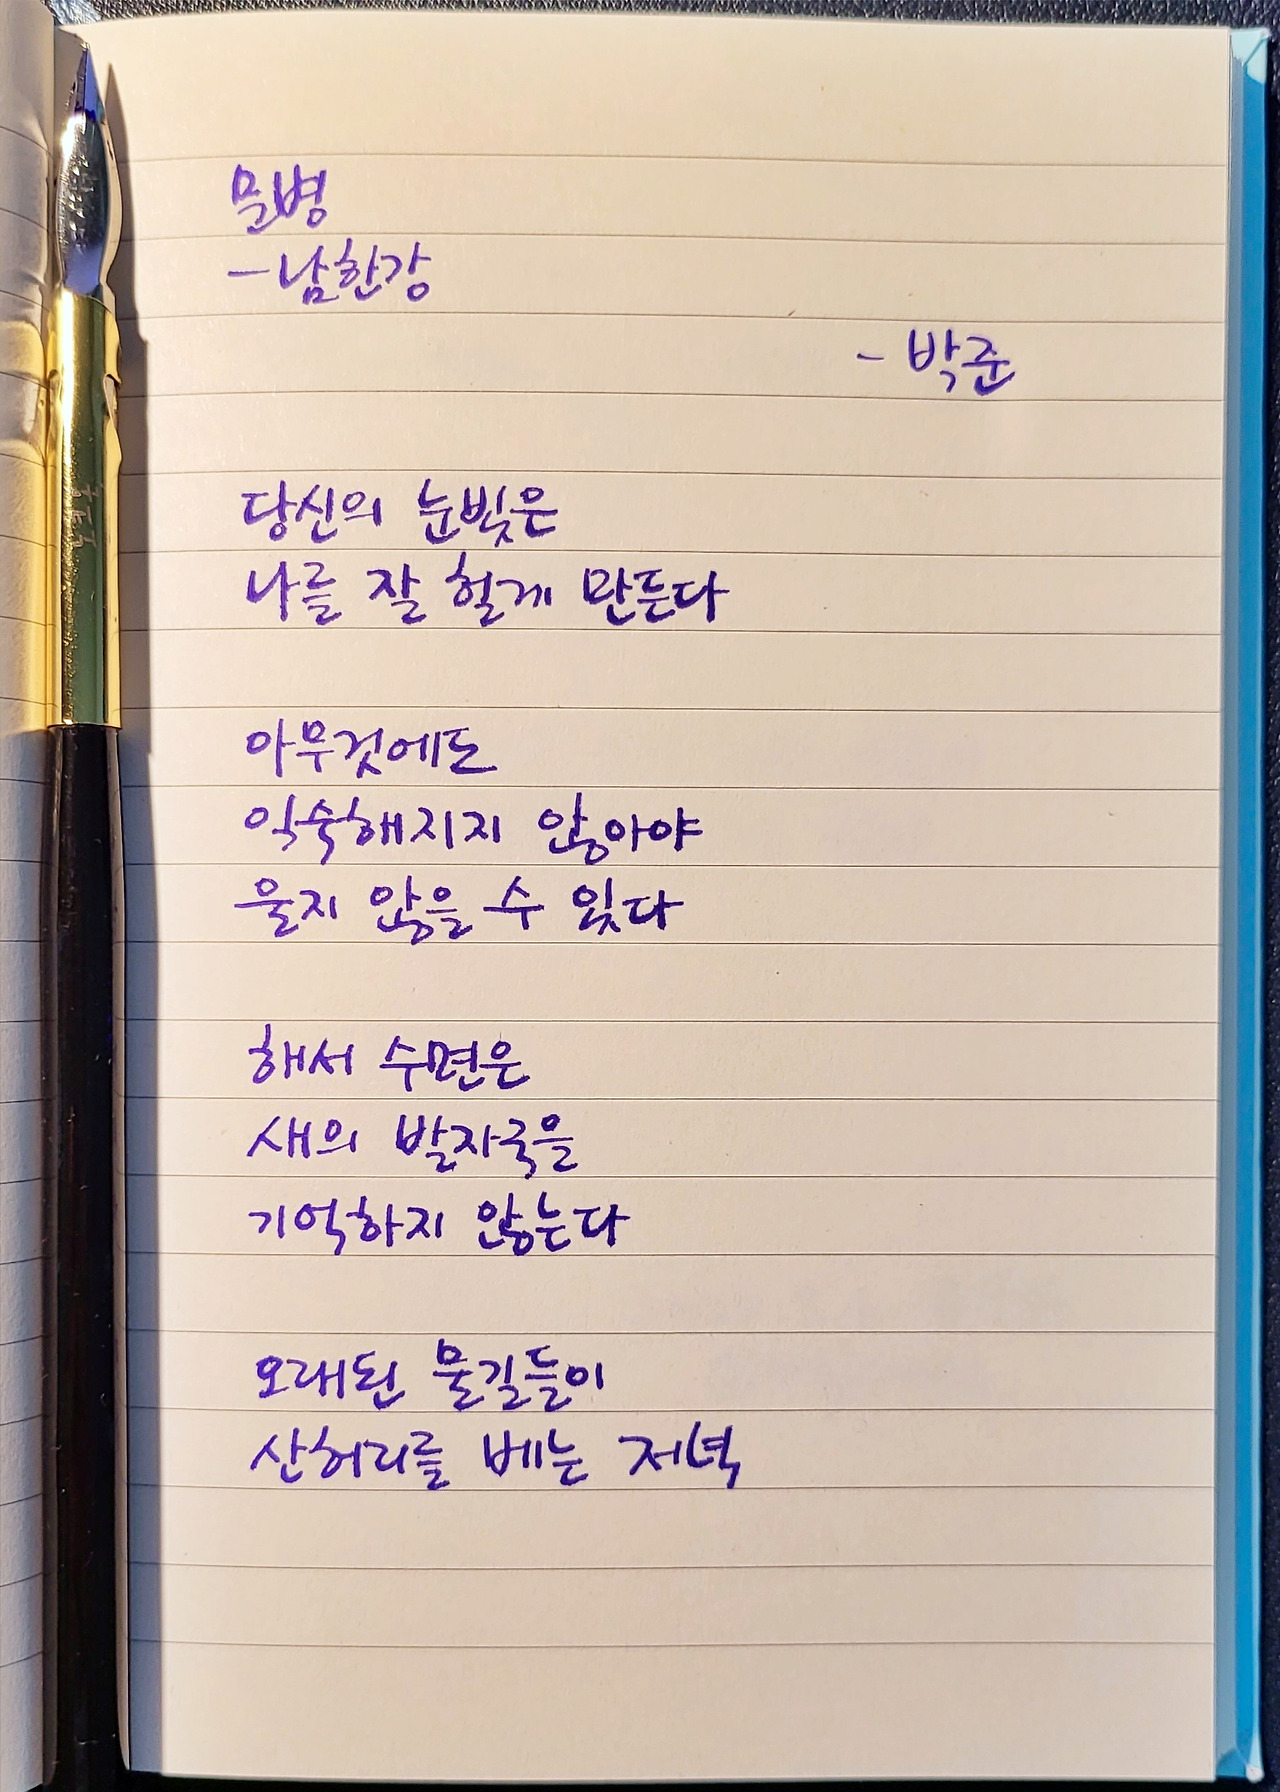 문병
-남한강
- 박준
당신의 눈빛은
나를 잘 헐게 만든다
아무것에도
익숙해지지 않아야
울지 않을 수 있다
해서 수면은
새의 발자국을
기억하지 않는다
오래된 물길들이
산허리를 베는 저녁